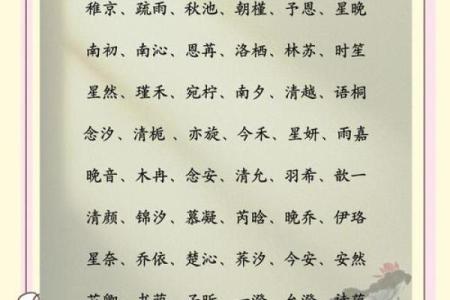 稚京、疏雨、秋池、朝槿、予恩、星晚
南初、南沁、恩苒、洛栖、林苏、时笙
星然、瑾禾、宛柠、南夕、清越、语桐
念汐、清栀、亦旋、今禾、星妍、雨嘉
晚音、木冉、念安、清允、羽希、歆一
清颜、锦汐、慕凝、芮晗、晚乔、伊珞
星奈、乔依、楚沁、荞汐、今安、安然